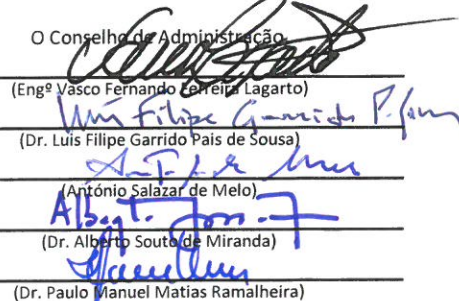 O Conselho de Administração
(Engº Vasco Fernando Ferreira Lagarto)
Luís Filipe Garrido P. Sousa
(Dr. Luis Filipe Garrido Pais de Sousa)
(António Salazar de Melo)
(Dr. Alberto Souto de Miranda)
(Dr. Paulo Manuel Matias Ramalheira)